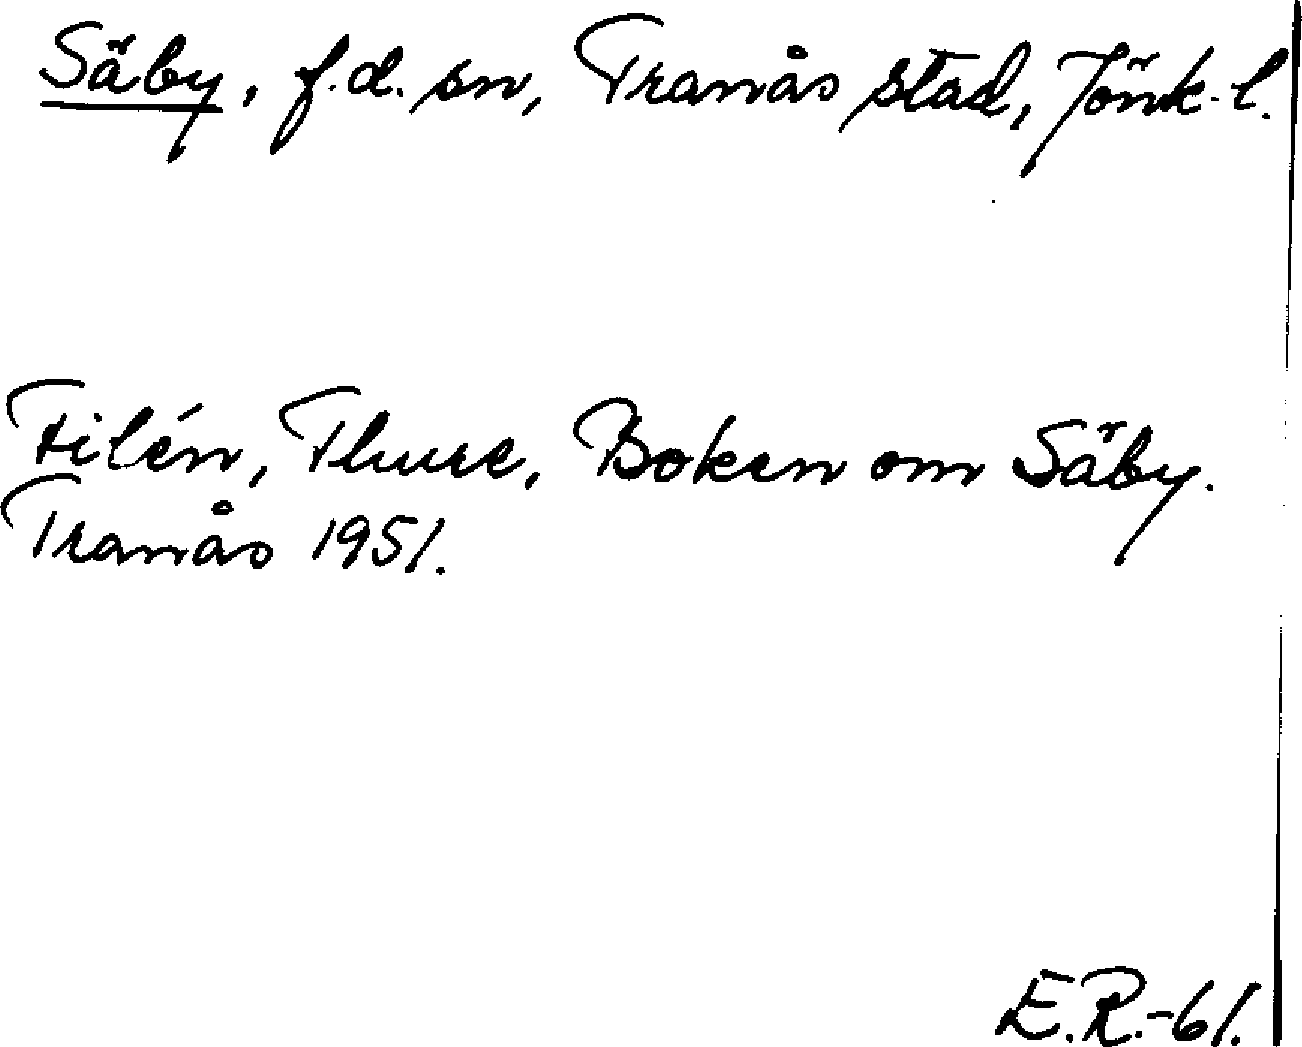 Säby, f.d. sn, Tranås stad, Jönk. l.
Filén, Thure, Boken om Säby.
Tranås 1951.
E.R.-61.